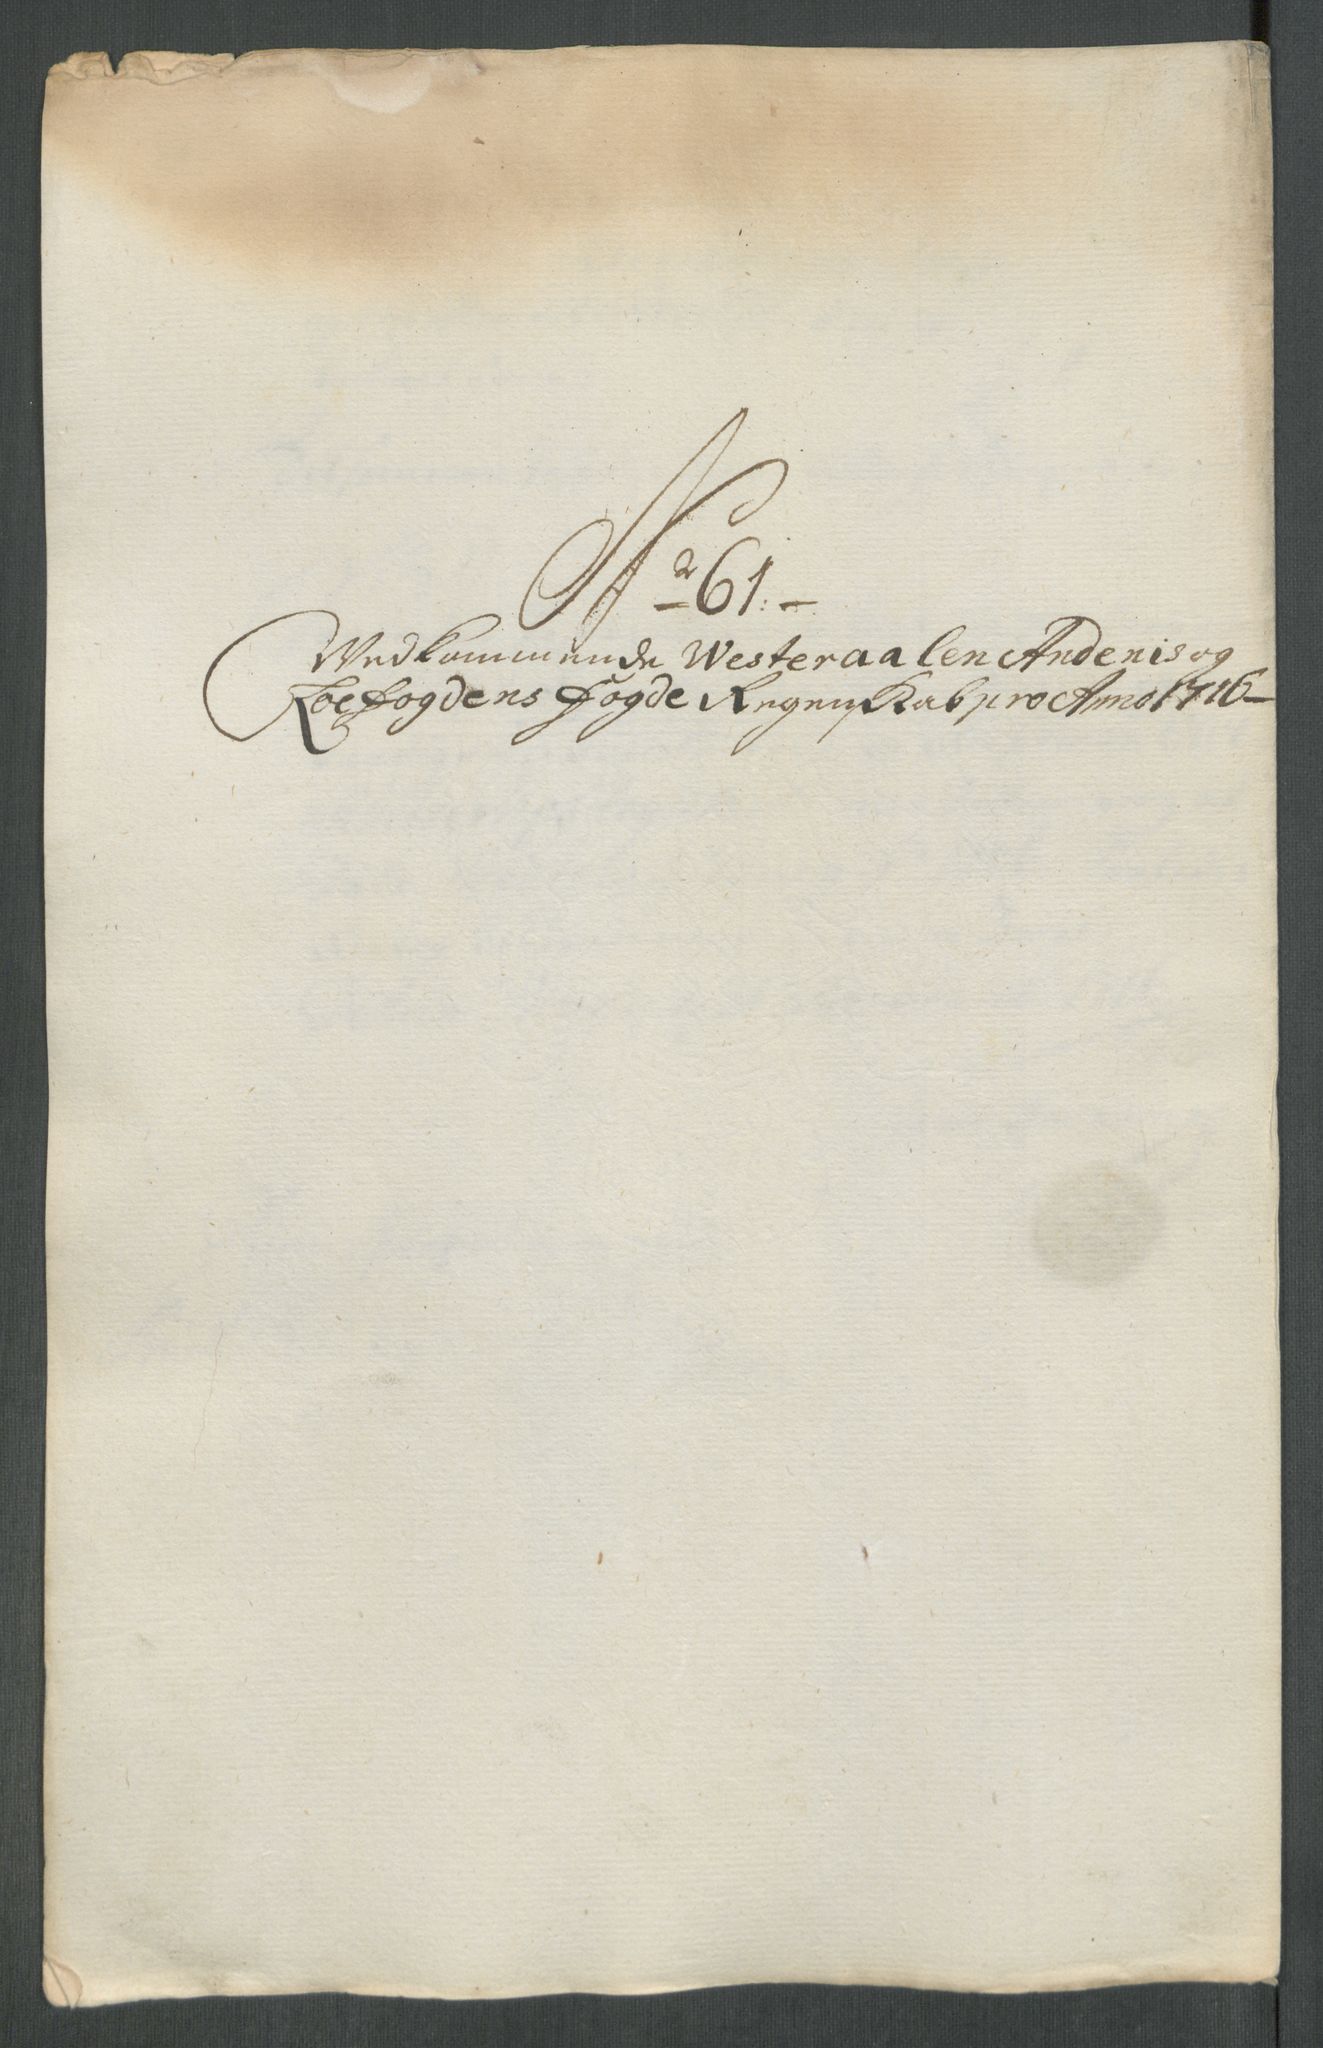 No 61.
Vedkommende Westeraalen Andenis og
Lofogdens Fogde Regenskab pro Anno 1716